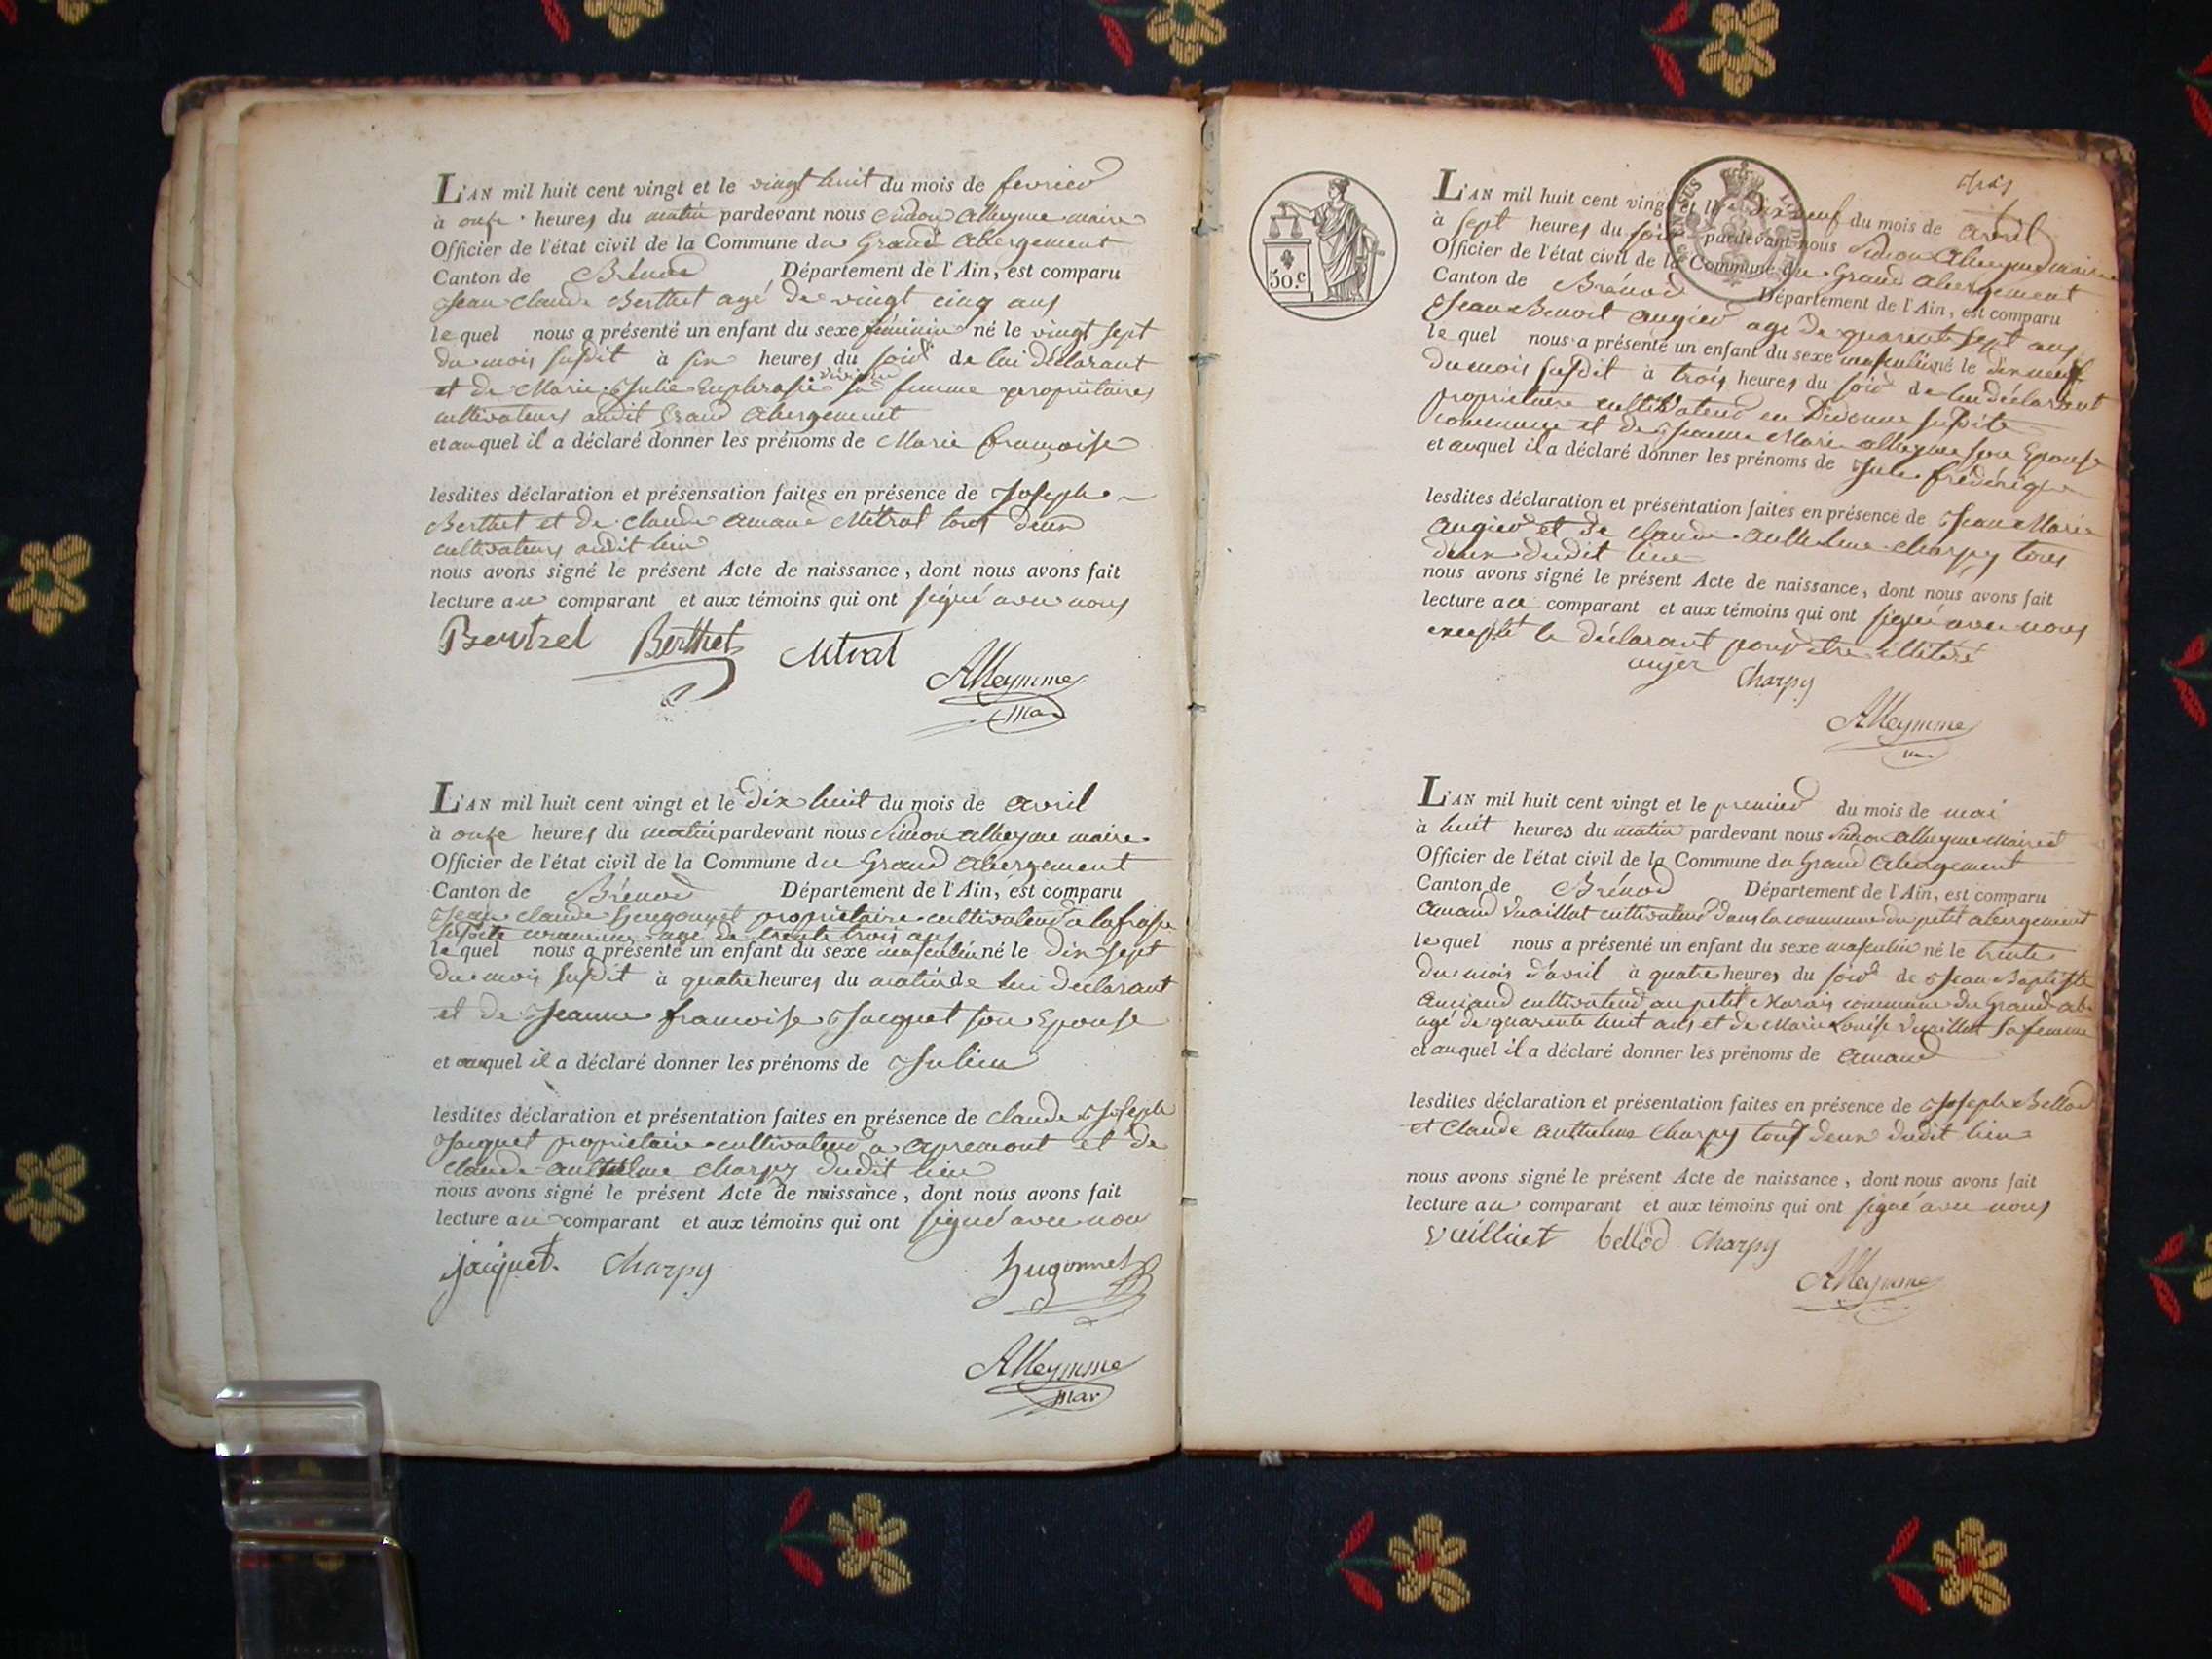 L'AN mil huit cent vingt et le vingt huit du mois de fevrier
à onze heures du matin pardevant nous Simon Alleyme maire
Officier de l'état civil de la Commune du Grand Abergement
Canton de Brénod Département de l'Ain, est comparu
Jean Claude Berthet agé de vingt cinq ans
lequel nous a présenté un enfant du sexe féminin né le vingt sept
du mois susdit à six heures du soir de lui déclarant
et de Marie Julie Euphrasie sa femme proprietaires
cultivateurs audit Grand Abergement
et auquel il a déclaré donner les prénoms de Marie françoise
lesdites déclaration et présensation faites en présence de Joseph
Berthet et de Claude Amand Métral tous deux
cultivateurs audit lieu
nous avons signé le présent Acte de naissance, dont nous avons fait
lecture au comparant et aux témoins qui ont signé avec nous
Berthet Metral
Alleymme
mar
L'AN mil huit cent vingt et le dix huit du mois de avril
à onze heures du matin pardevant nous Simon Alleyme maire
Officier de l'état civil de la Commune du Grand Abergement
Canton de Brénod Département de l'Ain, est comparu
Jean Claude hugonnet proprietaire cultivateur a
susdite commune agé de trente trois ans
lequel nous a présenté un enfant du sexe masculin né le dix sept
du mois susdit à quatre heures du matin de lui declarant
et de Jeanne francoise Jacquet son Epouse
et auquel il a déclaré donner les prénoms de Julien
lesdites déclaration et présentation faites en présence de Claude Joseph
Jacquet proprietaire cultivateur a apremont et de
Claude Anthelme Charpy dudit lieu
nous avons signé le présent Acte de naissance, dont nous avons fait
lecture au comparant et aux témoins qui ont signé avec nou
jaiquet. Charpy hugonnet
Alleymme
mar
50.c
L'AN mil huit cent vingt et le dix neuf du mois de avril
à sept heures du soir pardevant nous Simon Alleyme maire
Officier de l'état civil de la Commune du Grand Abergement
Canton de Brénod Département de l'Ain, est comparu
Jean Benoit augier agé de quarante sept ans
lequel nous a présenté un enfant du sexe masculin né le dix neuf
du mois susdit à trois heures du soir de lui déclarant
proprietaire cultivateur en susdite
commune et de Jeanne Marie Alleyme son Epouse
et auquel il a déclaré donner les prénoms de Jule frédérique
lesdites déclaration et présentation faites en présence de Jean Marie
augier et de Claude Anthelme Charpy tous
deux dudit lieu
nous avons signé le présent Acte de naissance, dont nous avons fait
lecture au comparant et aux témoins qui ont signé avec nous
excepté le déclarant pour etre illitéré
Charpy
Alleymme
L'AN mil huit cent vingt et le premier du mois de mai
à huit heures du matin pardevant nous Simon Alleyme Maire et
Officier de l'état civil de la Commune du Grand Abergement
Canton de Brénod Département de l'Ain, est comparu
Amand Vuaillat cultivateur dans la commune du petit abergement
lequel nous a présenté un enfant du sexe masculin né le trente
du mois d'avril à quatre heures du soir de Jean Baptiste
cultivateur au petit Marais commune du Grand ab.
agé de quarente huit ans et de Marie Louise Vuaillat sa femme
et auquel il a déclaré donner les prénoms de Amand
lesdites déclaration et présentation faites en présence de Joseph Bellod
et Claude Anthelme Charpy tous deux dudit lieu
nous avons signé le présent Acte de naissance, dont nous avons fait
lecture au comparant et aux témoins qui ont signé avec nous
bellod Charpy
Alleymme